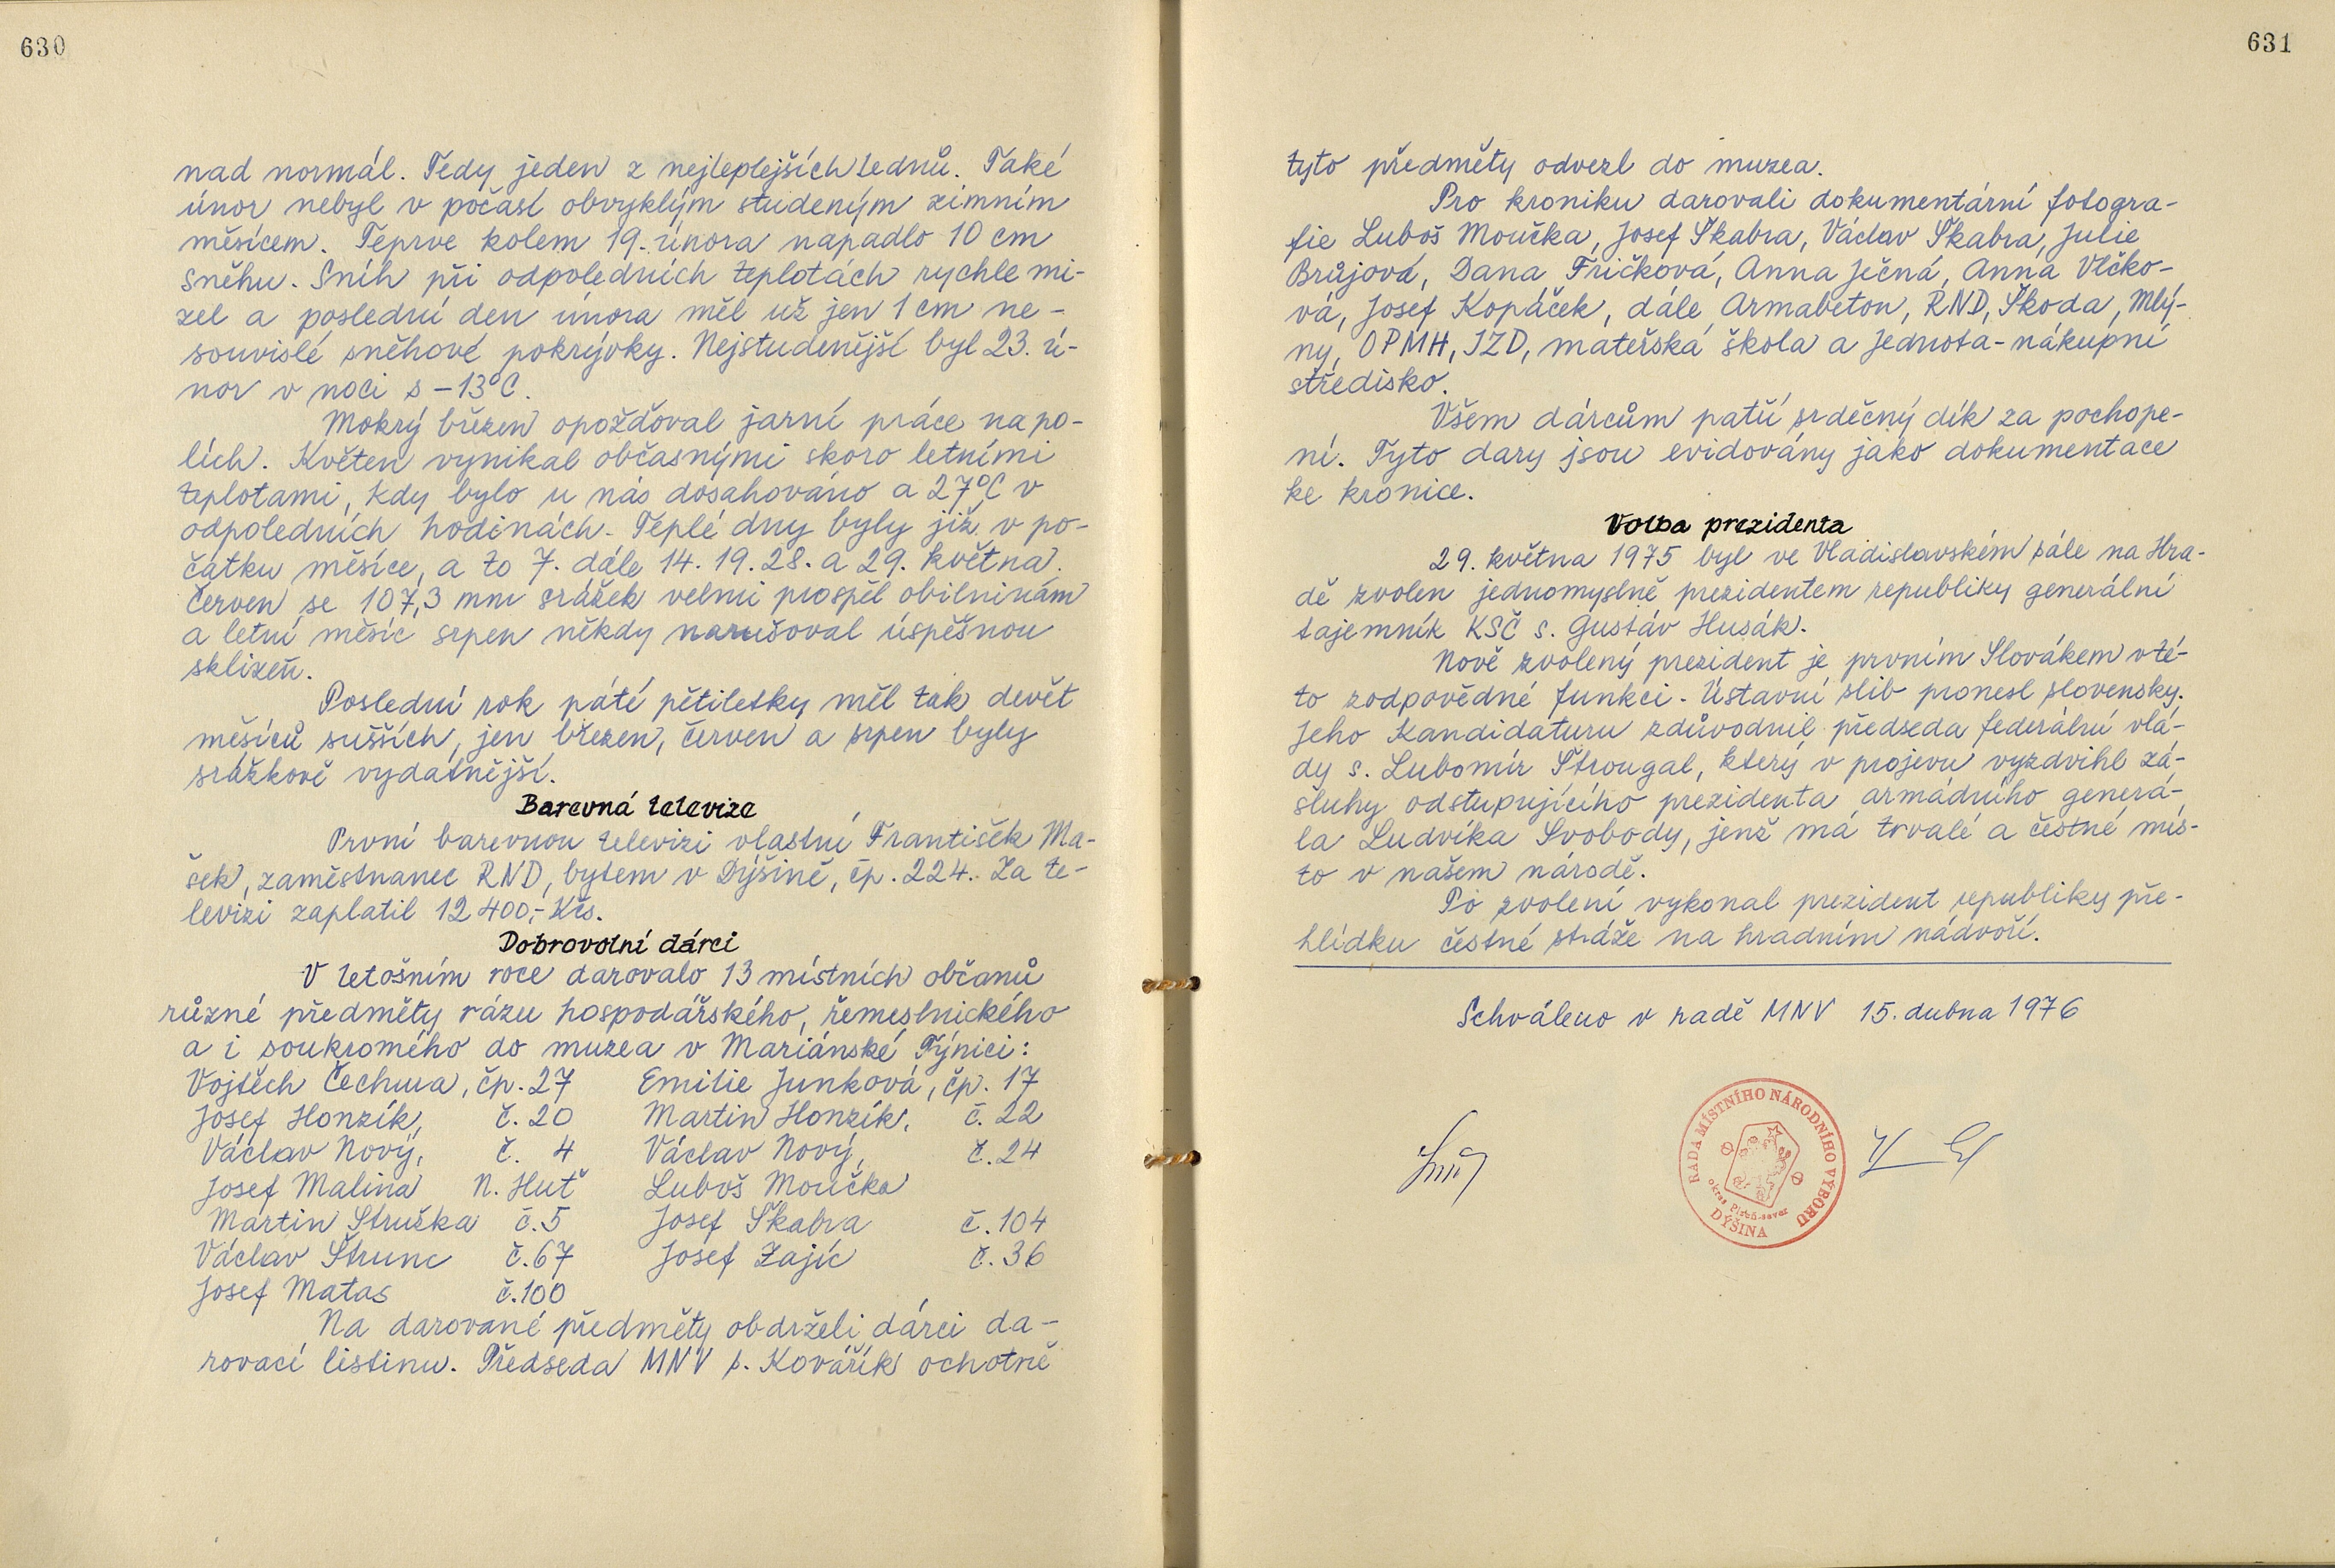 630
nad normál. Tedy jeden z nejteplejších lednů. Také
únor nebyl v počasí obvyklým studeným zimním
měsícem. Teprve kolem 19. února napadlo 10 cm
sněhu. Sníh při odpoledních teplotách rychle mi-
zel a poslední den února měl už jen 1 cm ne-
souvislé sněhové pokrývky. Nejstudenější byl 23. ú-
nor v noci s -13°C.
Mokrý březen opožďoval jarní práce na po-
lích. Květen vynikal občasnými skoro letními
teplotami, kdy bylo u nás dosahováno a 27°C v
odpoledních hodinách. Teplé dny byly již v po-
čátku měsíce, a to 7. dále 14. 19. 28. a 29. května.
Červen se 107,3 mm srážek velmi prospěl obilninám
a letní měsíc srpen někdy narušoval úspěšnou
sklizeň.
Poslední rok páté pětiletky měl tak devět
měsíců sušších, jen březen, červen a srpen byly
srážkově vydatnější.
Barevná televize
První barevnou televizi vlastní František Ma-
šek, zaměstnanec RND, bytem v Dýšině, čp. 224. Za te-
levizi zaplatil 12 400,- Kčs.
Dobrovolní dárci
V letošním roce darovalo 13 místních občanů
různé předměty rázu hospodářského, řemeslnického
a i soukromého do muzea v Mariánské Týnici:
Vojtěch Čechura, čp. 27 Emilie Junková, čp. 17
Josef Honzík, č. 20 Martin Honzík, č. 22
Václav Nový, č. 4 Václav Nový, č. 24
Josef Malina N. Huť Luboš Moučka
Martin Struska č. 5 Josef Škabra č. 104
Václav Štrunc č. 67 Josef Zajíc č. 36
Josef Matas č. 100
Na darované předměty obdrželi dárci da-
rovací listinu. Předseda MNV s. Kovářík ochotně
631
tyto předměty odvezl do muzea.
Pro kroniku darovali dokumentární fotogra-
fie Luboš Moučka, Josef Škabra, Václav Škabra, Julie
Brůjová, Dana Fričková, Anna Ječná, Anna Vlčko-
vá, Josef Kopáček, dále Armabeton, RND, Škoda, Mlý-
ny, OPMH, JZD, mateřská škola a Jednota-nákupní
středisko.
Všem dárcům patří srdečný dík za pochope-
ní. Tyto dary jsou evidovány jako dokumentace
ke kronice.
Volba prezidenta
29. května 1975 byl ve Vladislavském sále na Hra-
dě zvolen jednomyslně prezidentem republiky generální
tajemník KSČ s. Gustáv Husák.
Nově zvolený prezident je prvním Slovákem v té-
to zodpovědné funkci. Ústavní slib pronesl slovensky.
Jeho kandidaturu zdůvodnil předseda federální vlá-
dy s. Lubomír Štrougal, který v projevu vyzdvihl zá-
sluhy odstupujícího prezidenta armádního generá-
la Ludvíka Svobody, jenž má trvalé a čestné mís-
to v našem národě.
Po zvolení vykonal prezident republiky pře-
hlídku čestné stráže na hradním nádvoří.
Schváleno v radě MNV 15. dubna 1976
RADA MÍSTNÍHO NÁRODNÍHO VÝBORU
okres Plzeň-sever
DÝŠINA